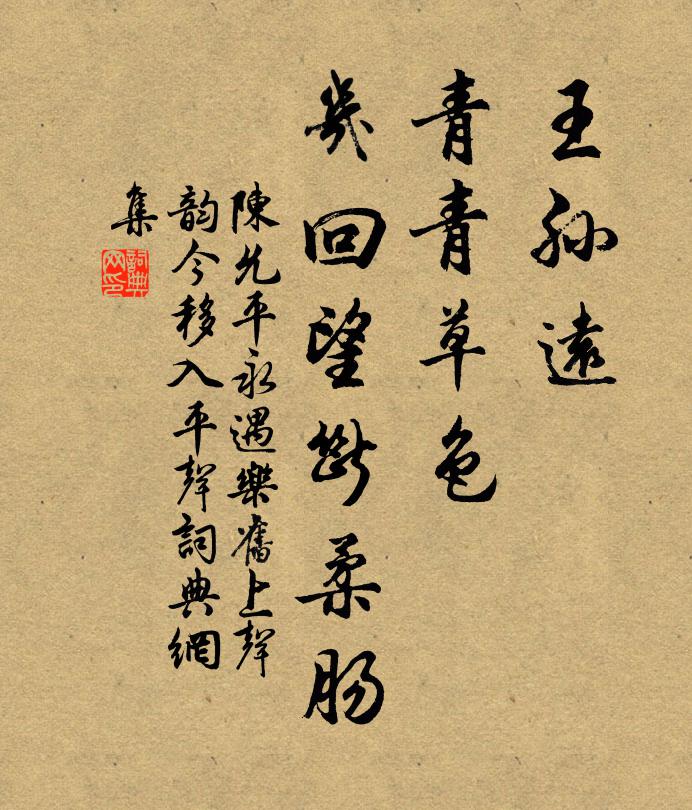 王孙遠
青青草色
幾回望断柔肠
陳允平永遇樂舊上聲
韵今移入平聲詞典網
集
詞典
网印